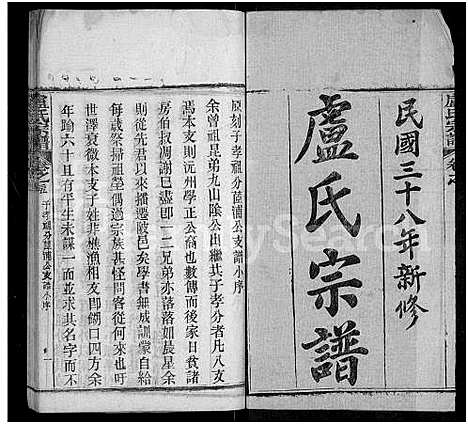 盧氏宗譜
民國三十八年新修
盧氏宗譜
原刻子孝祖分菲浦公支譜小序
余曾祖昆弟九山陰公出繼其子孝分者凡八支
焉本支則沅州學正公裔也數傳而後家日貧諸
房伯叔凋謝已盡即一二兄弟亦落落如晨星余
則從先君以來播遷歐邑矣學書無成訓蒙自給
每歲祭掃祖塋偶過宗族甚怪問客從何來也吁
世澤衰微本支子姓非樵漁相友即餬口四方余
年踰六十且有平生未謀一面並求其名字而不
盧氏宗譜
子孝祖分菲浦公支譜小序
一
FamilySearch